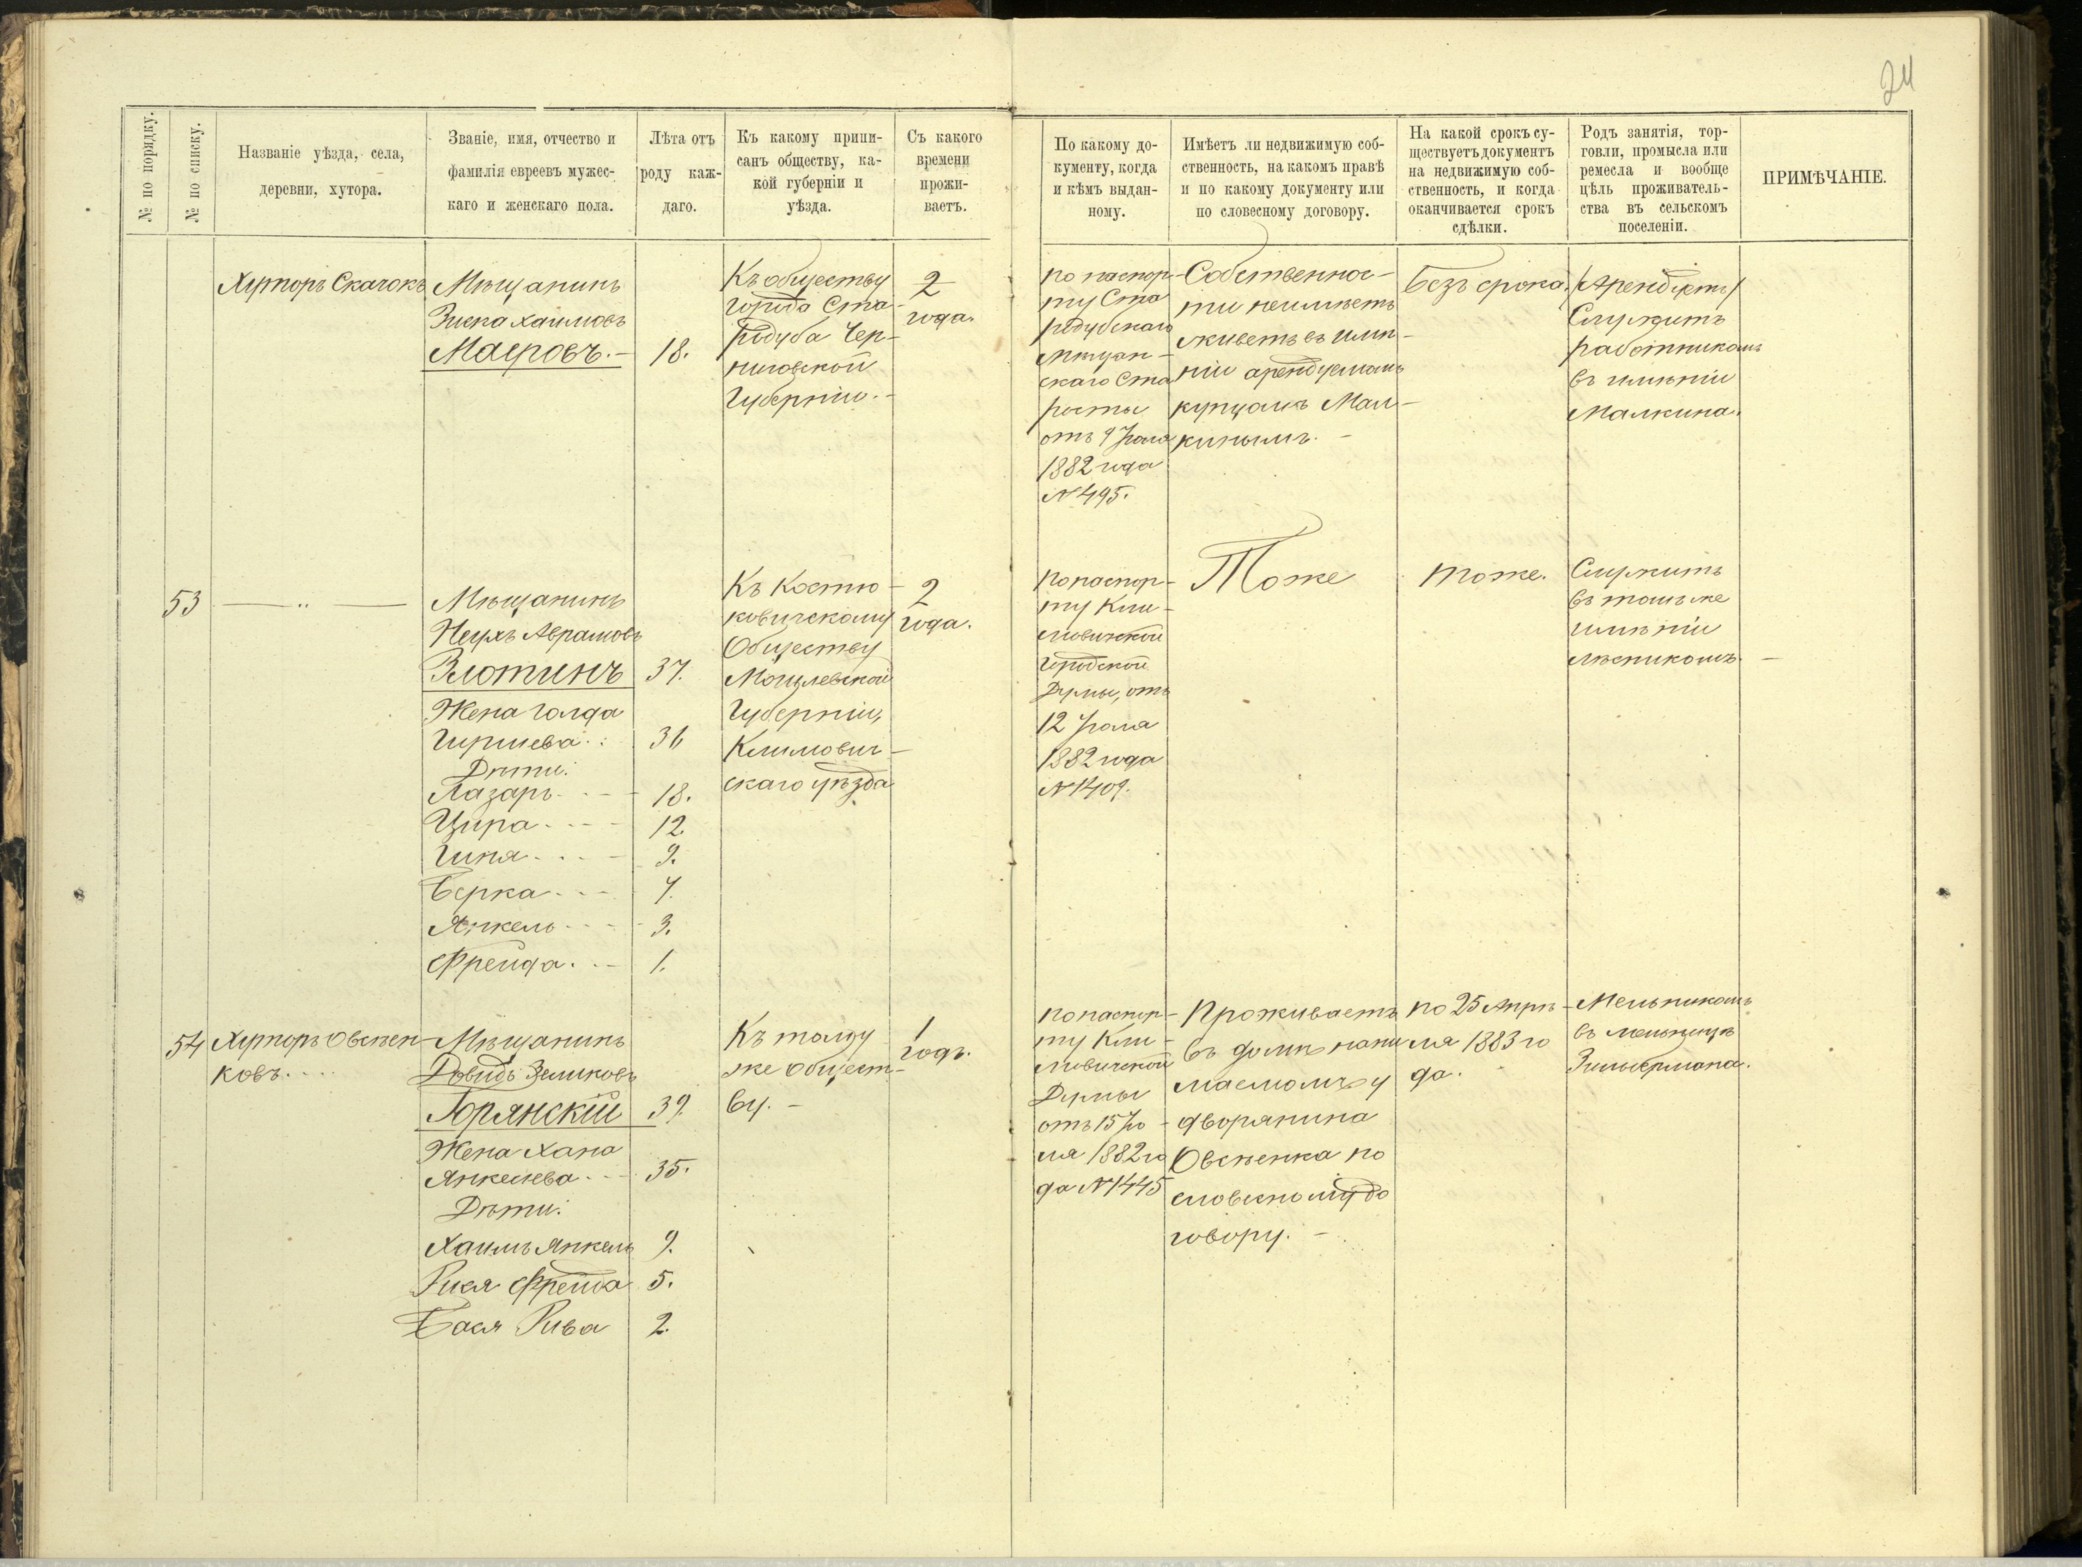 24
№ по порядку.
№ по списку.
Названіе уѣзда, села,
деревни, хутора.
Званіе, имя, отчество и
фамилія евреевъ мужес-
каго и женскаго пола.
Лѣта отъ
роду каж-
даго.
Къ какому припи-
санъ обществу, ка-
кой губерніи и
уѣзда.
Съ какого
времени
прожи-
ваетъ.
По какому до-
кументу, когда
и кѣмъ выдан-
ному.
Имѣетъ ли недвижимую соб-
ственность, на какомъ правѣ
и по какому документу или
по словесному договору.
На какой срокъ су-
ществуетъ документъ
на недвижимую соб-
ственность, и когда
оканчивается срокъ
сдѣлки.
Родъ занятія, тор-
говли, промысла или
ремесла и вообще
цѣль проживатель-
ства въ сельскомъ
поселеніи.
ПРИМѢЧАНІЕ.
Хуторъ Скачокъ
Мѣщанинъ
Хаимовъ
Маеровъ.
18.
Къ обществу
города Ста-
родуба Чер-
ниговской
Губерніи.
2
года.
по паспор-
ту Ста
родубскаго
мѣщан-
скаго Ста
росты
отъ 9 Іюля
1882 года
№ 495.
Собственнос-
ти неимѣетъ
живетъ въ имѣ-
ніи арендуемомъ
купцомъ Мал-
кинымъ.
Безъ срока.
/Арендуетъ/
Служитъ
работникомъ
въ имѣніи
Малкина.
53
— „ —
Мѣщанинъ
Неухъ Абрамовъ
Злотинъ
37.
Жена Голда
Гиршева.
36
Дѣти:
Лазарь
18.
Цира
12.
Гиня
9.
Берка
7.
Янкель
3.
Фрейда.
1.
Къ Костю-
ковичскому
Обществу
Могилевской
Губерніи,
Климович-
скаго уѣзда
2
года.
по паспор-
ту Кли-
мовичской
Городской
Думы, отъ
12 Іюля
1882 года
№ 1409.
Тоже
тоже.
Служитъ
въ томъ же
имѣніи
лѣсникомъ.
54
Хуторъ Овсѣен-
ковъ.
Мѣщанинъ
Довидъ Зеликовъ
Брянскій
39.
Жена Хана
Янкелева
35.
Дѣти:
Хаимъ Янкель
9.
Рися Фрейда
5.
Бася Рива
2.
Къ тому
же Общест-
ву.
1
годъ.
по паспор-
ту Кли-
мовичской
Думы
отъ 15 Ію-
ля 1882 го
да № 1445
Проживаетъ
въ домѣ нани
маемомъ у
дворянина
Овсѣенка по
словесному до
говору.
по 25 Апрѣ-
ля 1883 го
да.
Мельникомъ
въ мельницѣ
Зильбермана.